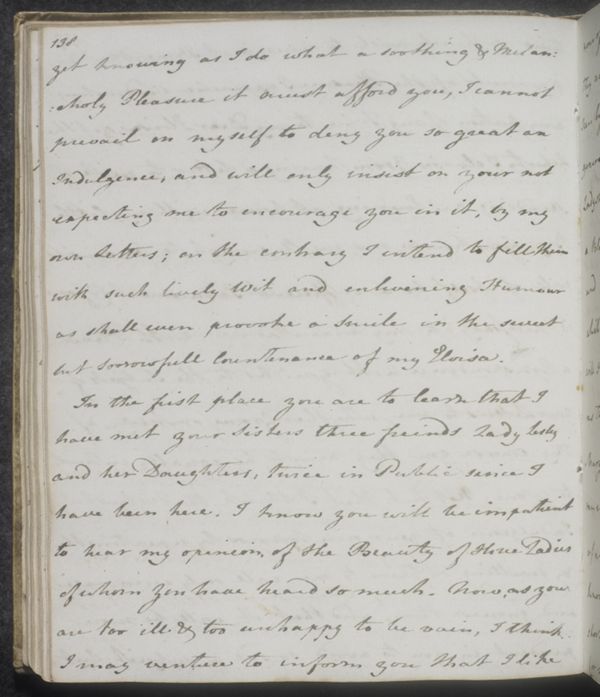 138
yet knowing as I do what a soothing & Melan:
:choly Pleasure it must afford you, I cannot
prevail on myself to deny you so great an
Indulgence, and will only insist on your not
expecting me to encourage you in it, by my
own letters; on the contrary I intend to fill them
with such lively Wit and enlivening Humour
as shall even provoke a smile in the sweet
but sorrowfull Countenance of my Eloisa.
In the first place you are to learn that I
have met your Sisters three freinds Lady Lesley
and her Daughters, twice in Public since I
have been here. I know you will be impatient
to hear my opinion of the Beauty of three Ladies
of whom you have heard so much. Now, as you
are too ill & too unhappy to be vain, I think
I may venture to inform you that I like